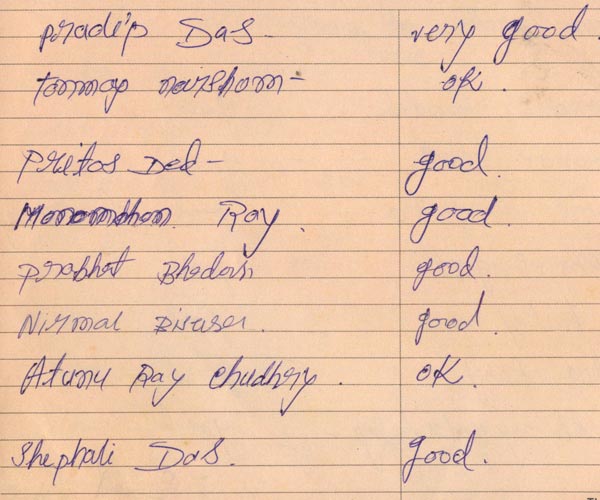 Pradip Das - very good.
Tanmoy naisham - ok.
Pritos Ded - good.
Manomohan. Ray. good.
Prabhat Bhadari good.
Nirmal Biswas. good.
Atunu Ray Chudhry. OK.
Shephali Das. good.